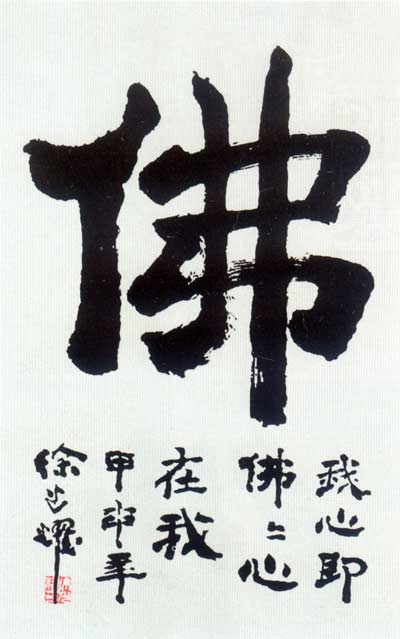 佛
我心即
佛〻心
在我
甲申年
徐 耀